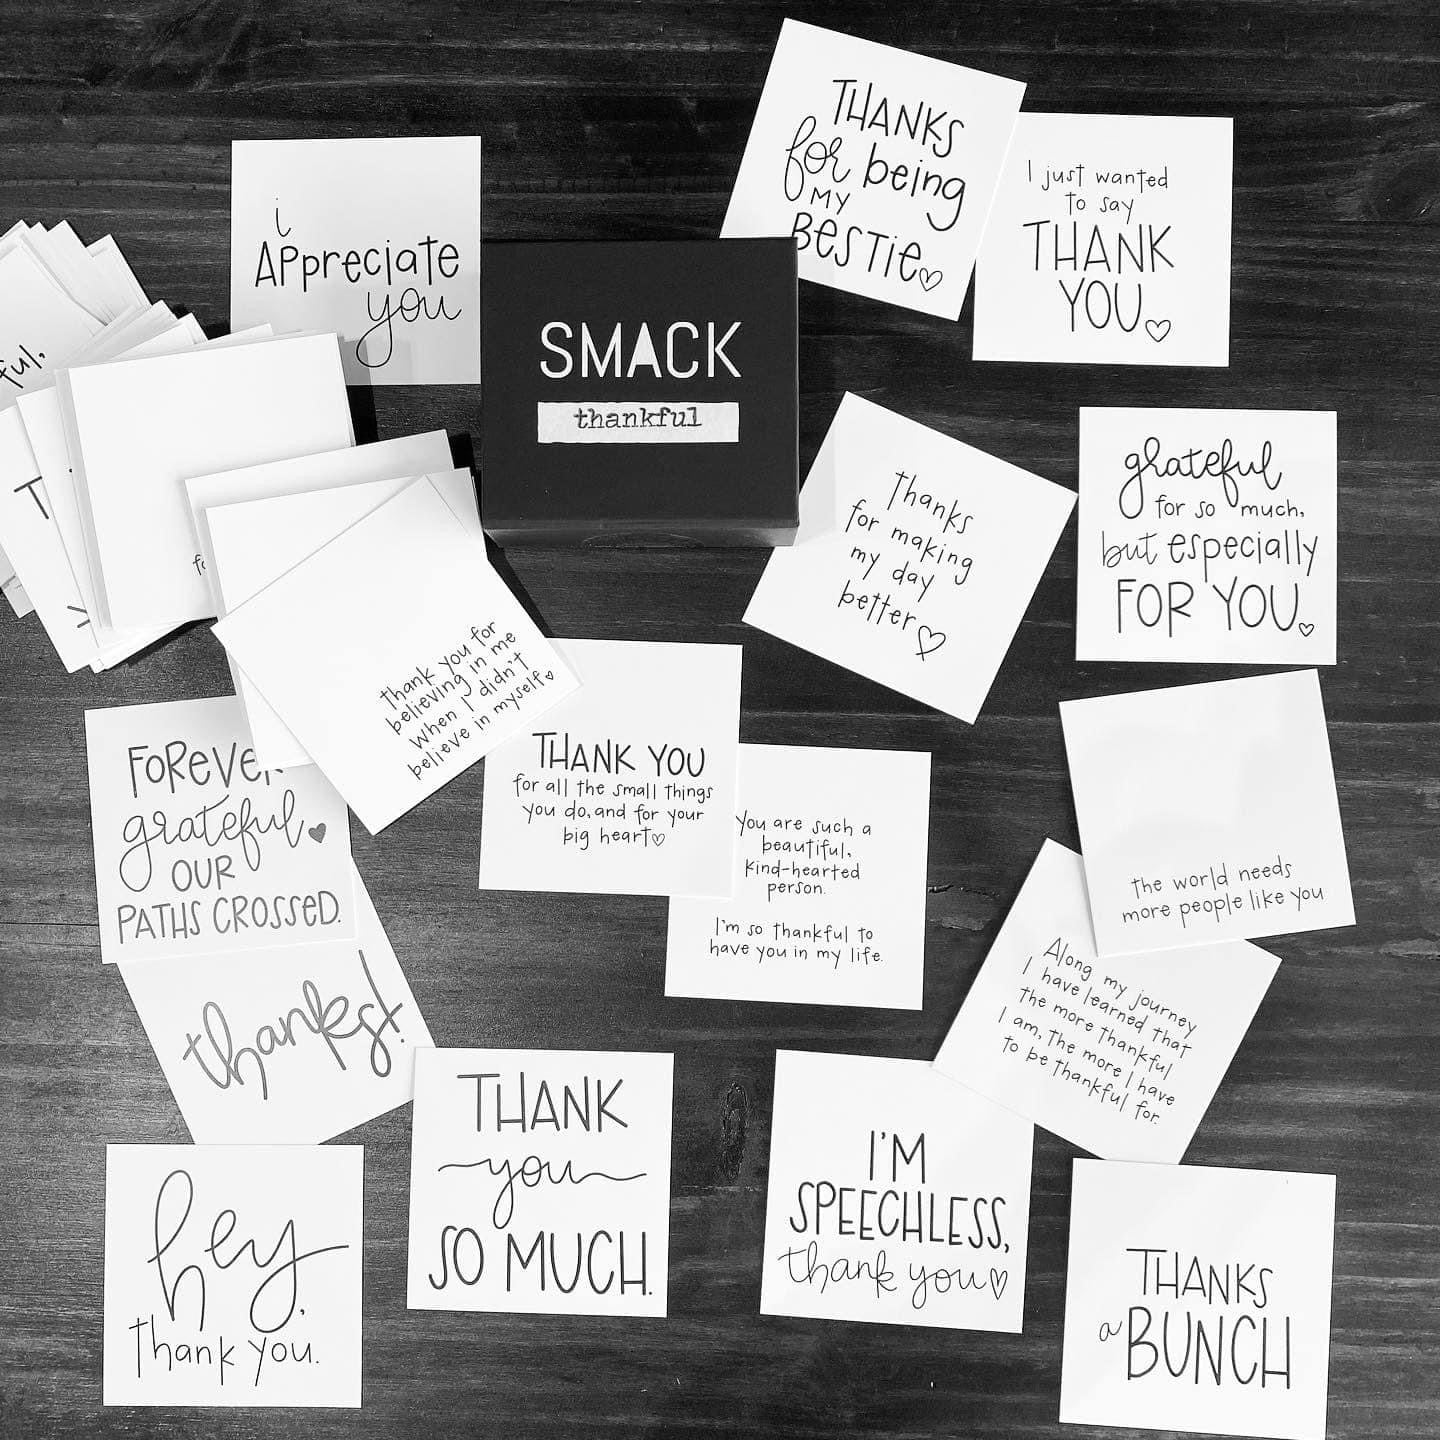 i
APpreciate
you
SMACK
thankful
THANKS
for being
MY
BESTIE
I just wanted
to say
THANK
YOU
Thanks
for making
my day
better
grateful
for so much,
but especially
FOR YOU
thank you for
believing in me
when I didn't
believe in myself
FOREVER
grateful
OUR
PATHS CROSSED.
THANK YOU
for all the small things
you do, and for your
big heart
You are such a
beautiful,
kind-hearted
person.
I'm so thankful to
have you in my life.
the world needs
more people like you
Along my journey
I have learned that
the more thankful
I am, the more I have
to be thankful for.
thanks!
hey,
thank you.
THANK
you
SO MUCH.
I'M
SPEECHLESS,
thank you
THANKS
a BUNCH